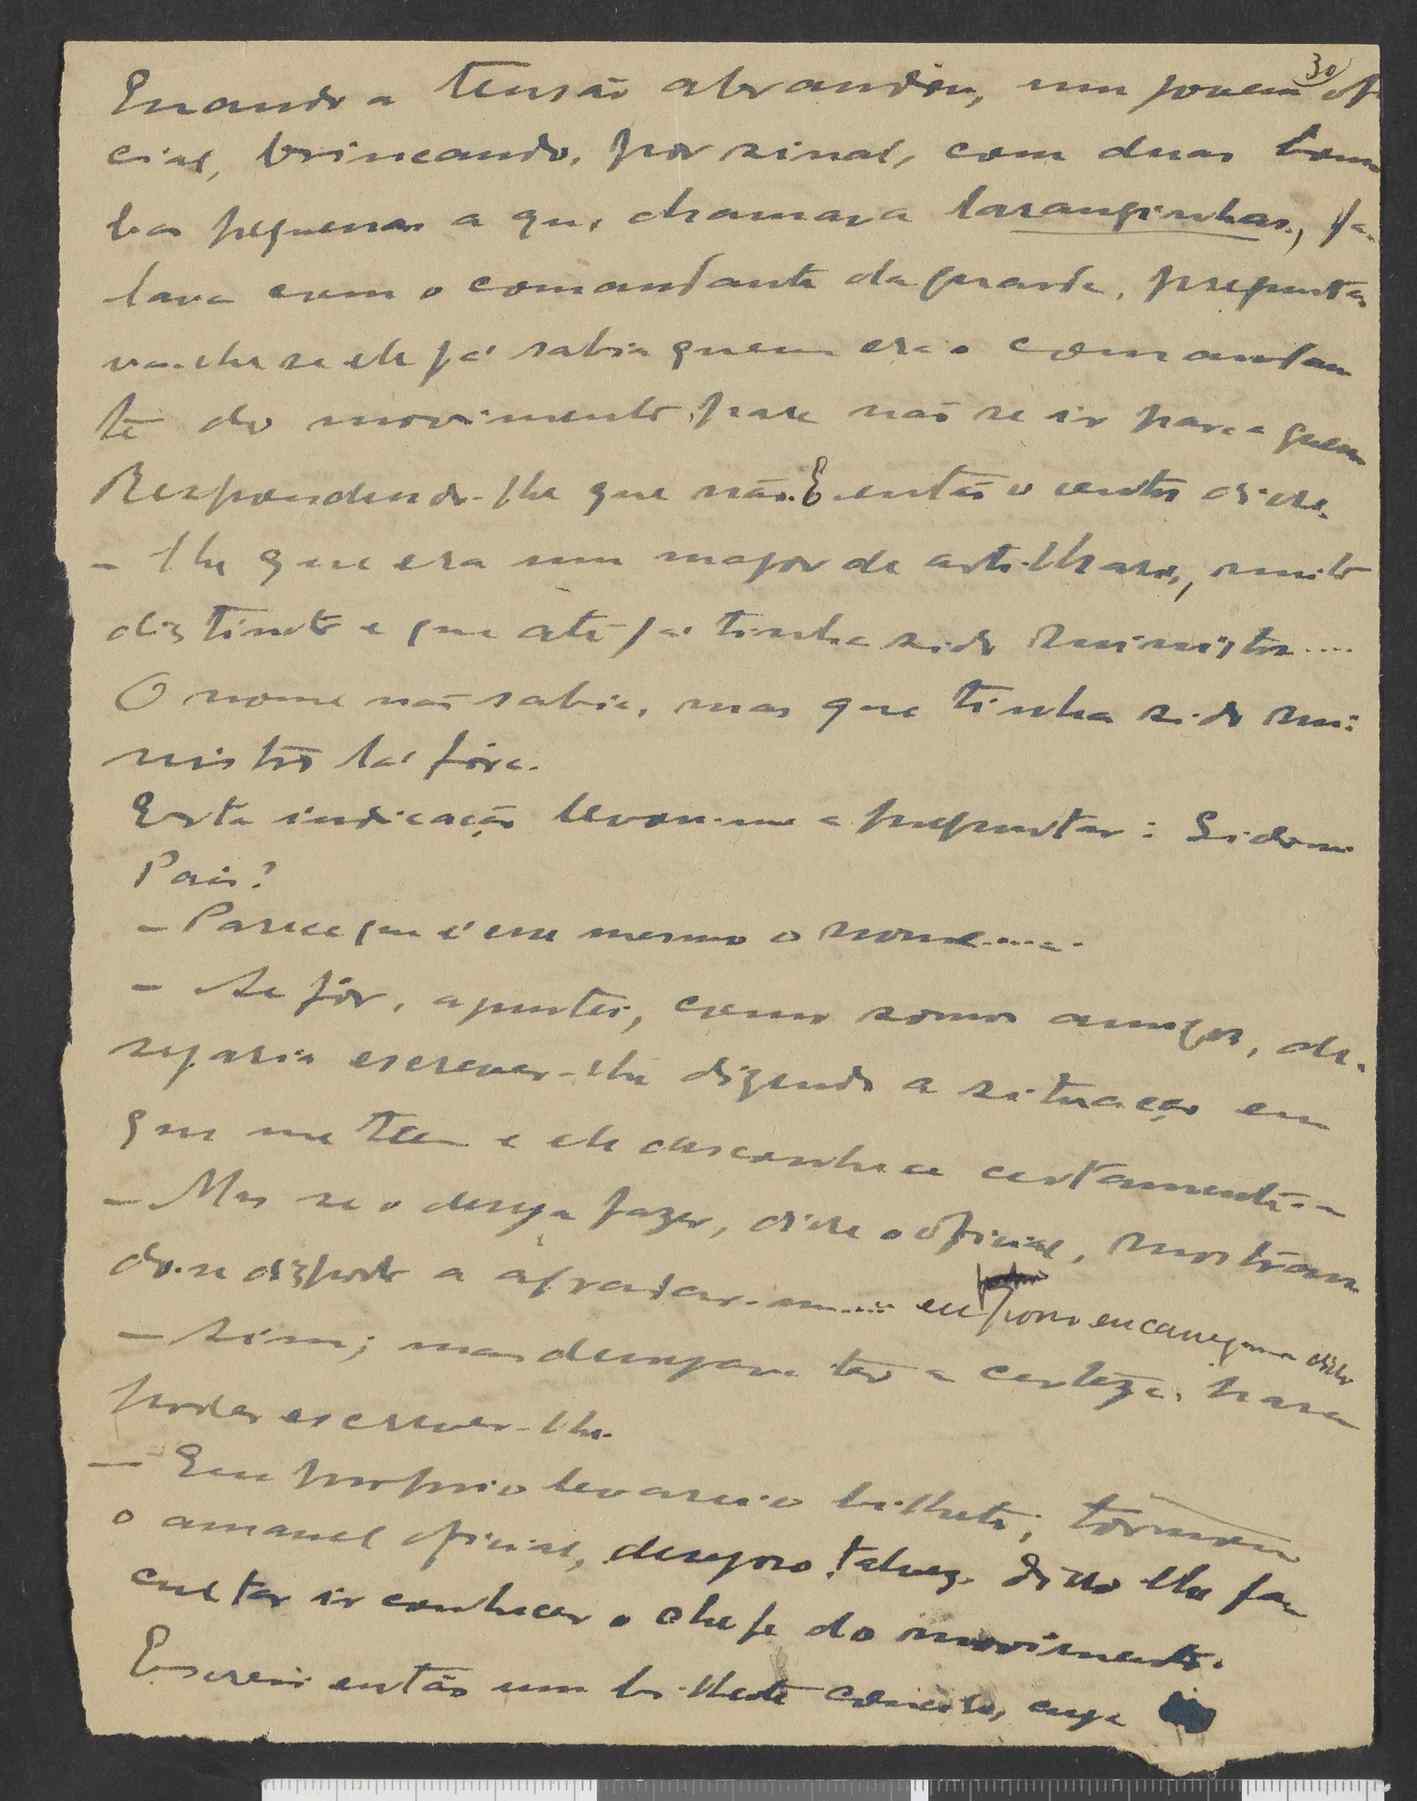 30
Quando a tensão abrandou, um jovem ofi
cial, brincando, por sinal, com duas bom
bas pequenas a que chamava laranginhas, fa-
lava com o comandante da guarda, pregunta
va-lhe se ele já sabia quem era o comandan
te do movimento, para não se ir para a guerra
Respondendo-lhe que não. E então o outro disse
- lhe que era um major de artilharia, muito
distincto e que até já tinha sido ministro....
O nome não sabia, mas que tinha sido mi-
nistro lá fóra.
Esta indicação levou-me a preguntar: Sidonio
Pais?
- Parece que é esse mesmo o nome.....
- Se fôr, apontei, como somos amigos, de-
sejaria escrever-lhe dizendo a situação em
que me teem e ele desconhece certamente...
- Mas se o deseja fazer, disse o oficial, mostran
do-se disposto a agradar-me.... eu posso encarregar-me disto
- Sim; mas desejava ter a certeza, para
poder escrever-lhe.
- Eu proprio levarei o bilhete, tornou
o amavel oficial, desejoso talvez disso lhe fa
cultar ir conhecer o chefe do movimento.
Escrevi então um bilhete conciso, cuja